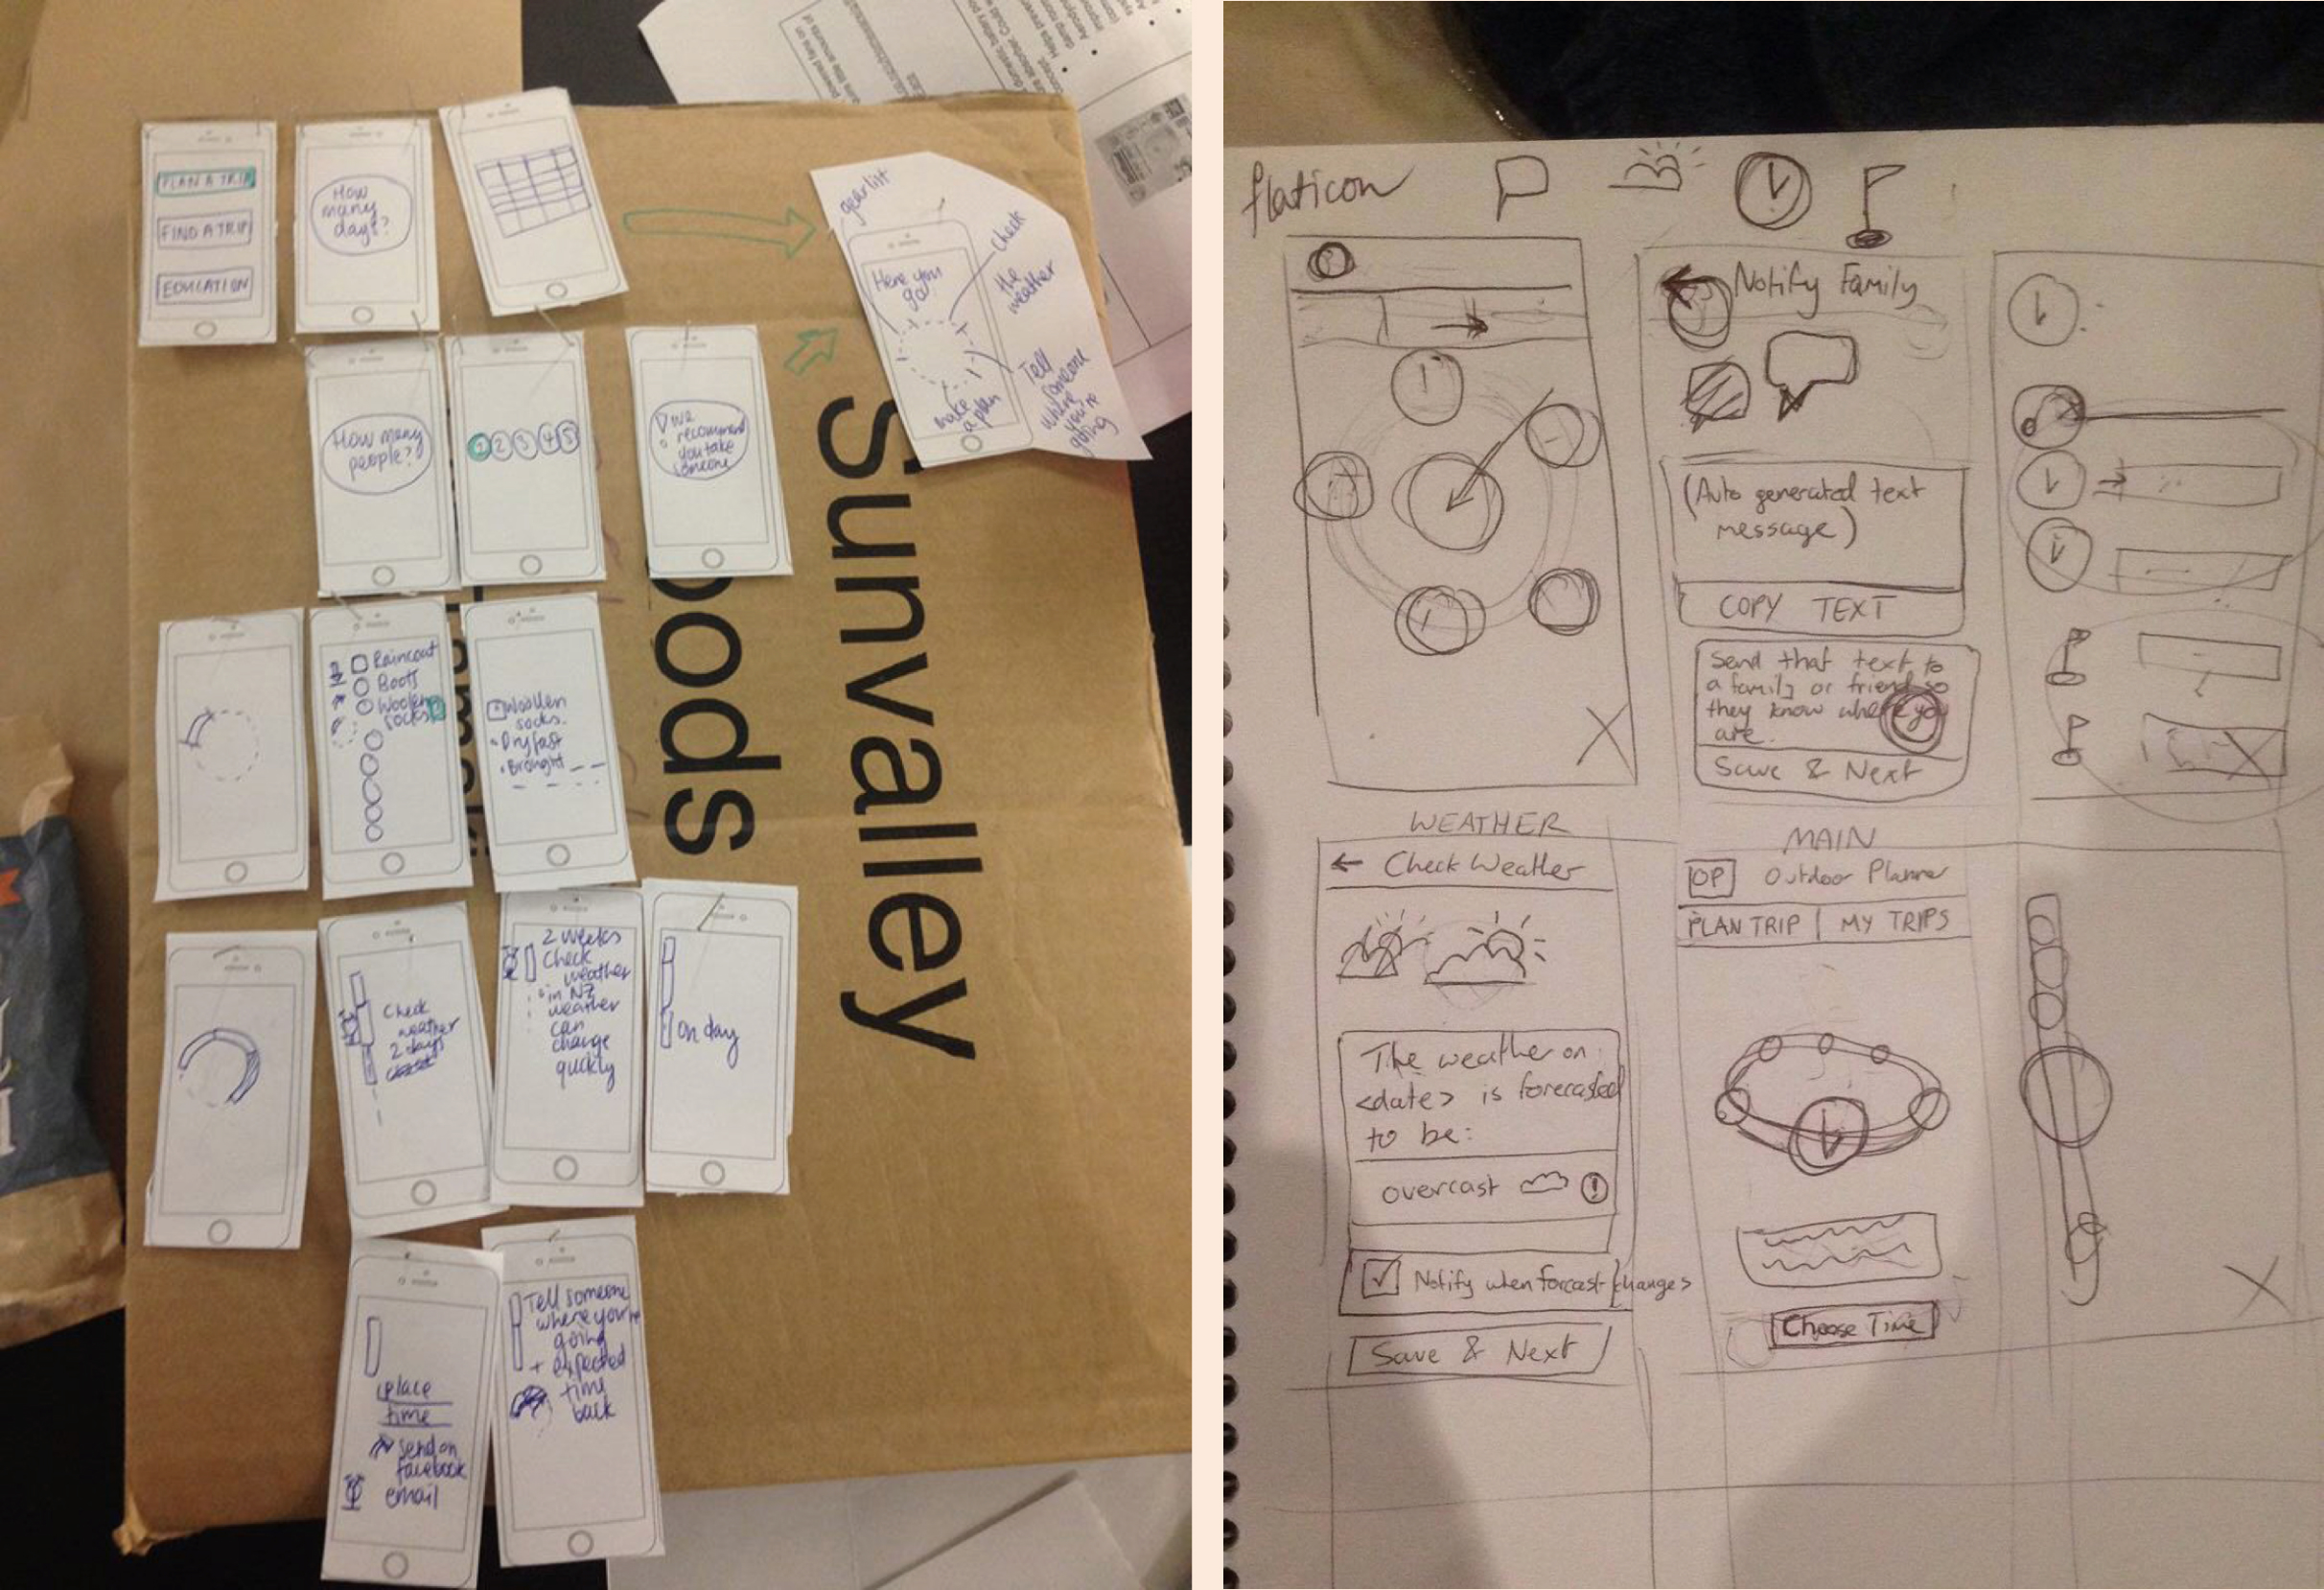 PLAN A TRIP
FIND A TRIP
EDUCATION
How
many
days?
gear list
Here you
go!
check
the
weather
make
a plan
Tell
someone
where
you're
going
How many
people?
1 2 3 4 5
we
recommend
you take
someone
Raincoat
Boots
Woolen
socks
Woollen
socks.
Dry fast
Brought
Check
weather
2 days
2 weeks
Check
weather
in NZ
weather
can
change
quickly
on day
place
time
send on
facebook
email
Tell someone
where you're
going
+ expected
time
back
Sunvalley
oods
flaticon
Notify Family
(Auto generated text
message)
COPY TEXT
Send that text to
a family or friend so
they know where you
are.
Save & Next
WEATHER
Check Weather
The weather on
<date> is forecasted
to be:
overcast
Notify when forcast changes
Save & Next
MAIN
OP Outdoor Planner
PLAN TRIP | MY TRIPS
Choose Time